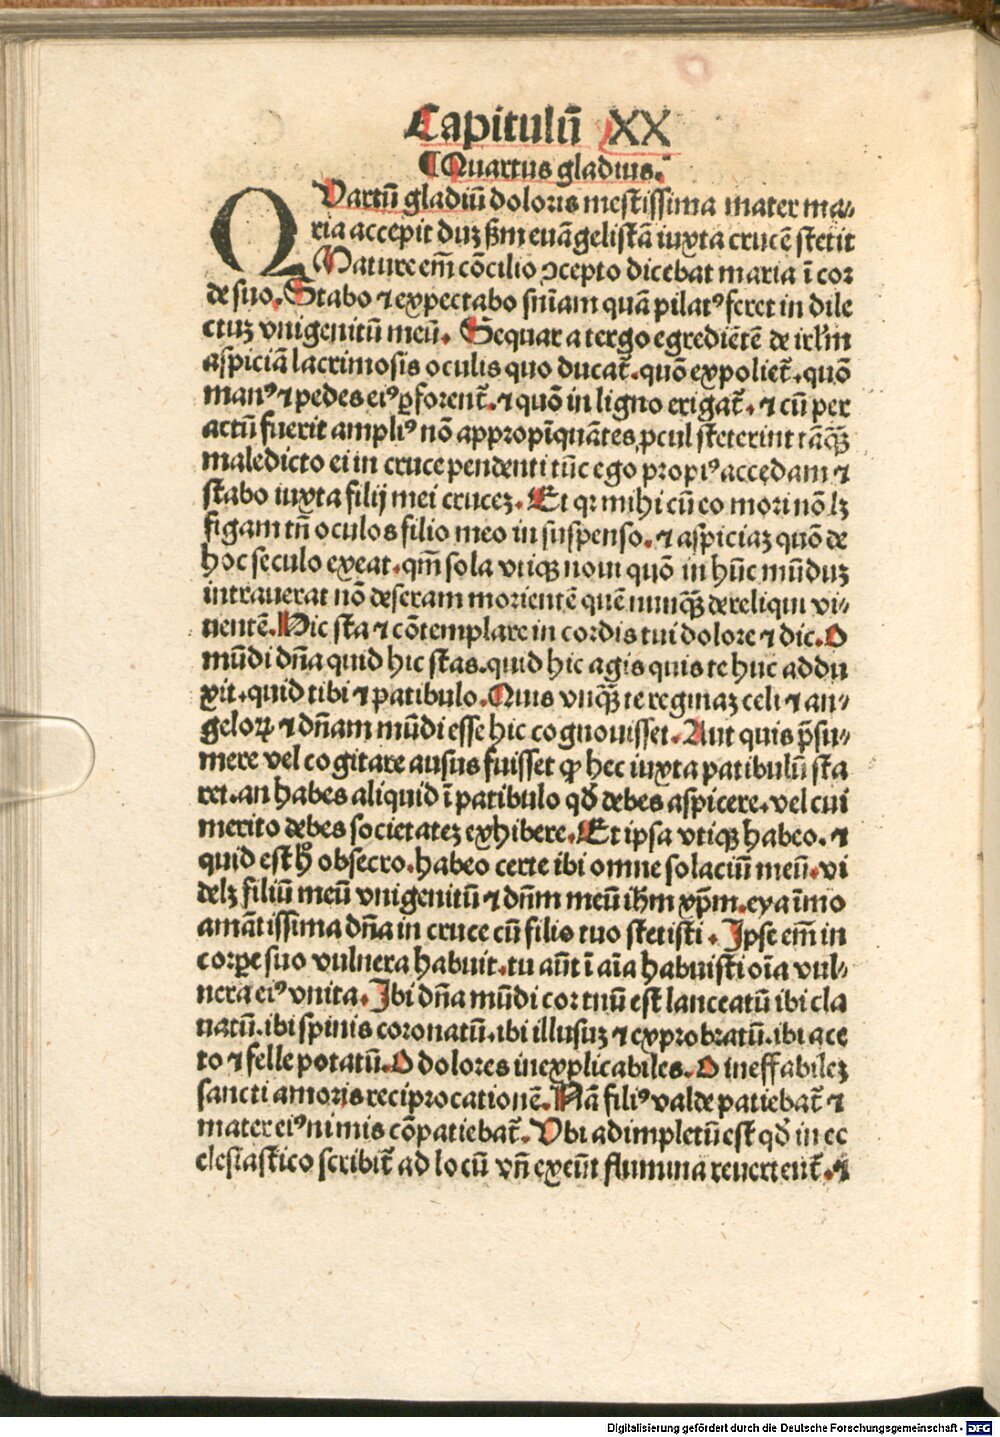 Capitulū XX
¶Quartus gladius.
QVartū gladiū doloris mestissima mater ma⸗
ria accepit duꝫ ẞm euāgelistā iuxta crucē stetit
Nature em̄ cōcilio ↄcepto dicebat maria ī cor
de suo. Stabo ⁊ expectabo sn̄iam quā pilatꝰ feret in dile
ctuꝫ vnigenitū meū. Sequar a tergo egrediētē de irl̄m
aspiciā lacrimosis oculis quo ducat᷑. quō expoliet᷑. quō
manꝰ ⁊ pedes eiꝰ ꝑforent᷑. ⁊ quō in ligno erigat᷑. ⁊ cū per
actū fuerit ampliꝰ nō appropīquātes ꝓcul steterint tāqꝫ̄
maledicto ei in cruce pendenti tūc ego propiꝰ accedam ⁊
stabo iuxta filij mei cruceꝫ. Et qꝛ mihi cū eo mori nō lꝫ
figam tn̄ oculos filio meo in suspenso. ⁊ aspiciaꝫ quō de
hoc seculo exeat. qm̄ sola vtiqꝫ noui quō in hūc mūduꝫ
intrauerat nō deseram morientē quē nunqꝫ̄ dereliqui vi⸗
uentē. Hic sta ⁊ cōtemplare in cordis tui dolore ⁊ dic. O
mūdi dn̄a quid hic stas. quid hic agis quis te huc addu
xit. quid tibi ⁊ patibulo. Quis vnqꝫ̄ te reginaꝫ celi ⁊ an⸗
geloꝝ ⁊ dn̄am mūdi esse hic cognouisset. Aut quis p̄su⸗
mere vel cogitare ausus fuisset ꝙ hec iuxta patibulū sta
ret. an habes aliquid ī patibulo qđ debes aspicere. vel cui
merito debes societateꝫ exhibere. Et ipsa vtiqꝫ habeo. ⁊
quid est ħ obsecro. habeo certe ibi omne solaciū meū. vi
delꝫ filiū meū vnigenitū ⁊ dn̄m meū ihm xp̄m. eya īmo
amātissima dn̄a in cruce cū filio tuo stetisti. Ipse em̄ in
corꝑe suo vulnera habuit. tu aūt ī aīa habuisti oīa vul⸗
nera eiꝰ vnita. Ibi dn̄a mūdi cor tuū est lanceatū ibi cla
uatū. ibi spinis coronatū. ibi illusuꝫ ⁊ exprobratū. ibi ace
to ⁊ felle potatū. O dolores inexplicabiles. O ineffabileꝫ
sancti amoris reciprocationē. Nā filiꝰ valde patiebat᷑ ⁊
mater eiꝰ nimis cōpatiebat᷑. Vbi adimpletū est qđ in ec
clesiastico scribit᷑ ad locū vn̄ exeūt flumina reuertent᷑. ⁊
Digitalisierung gefördert durch die Deutsche Forschungsgemeinschaft - DFG